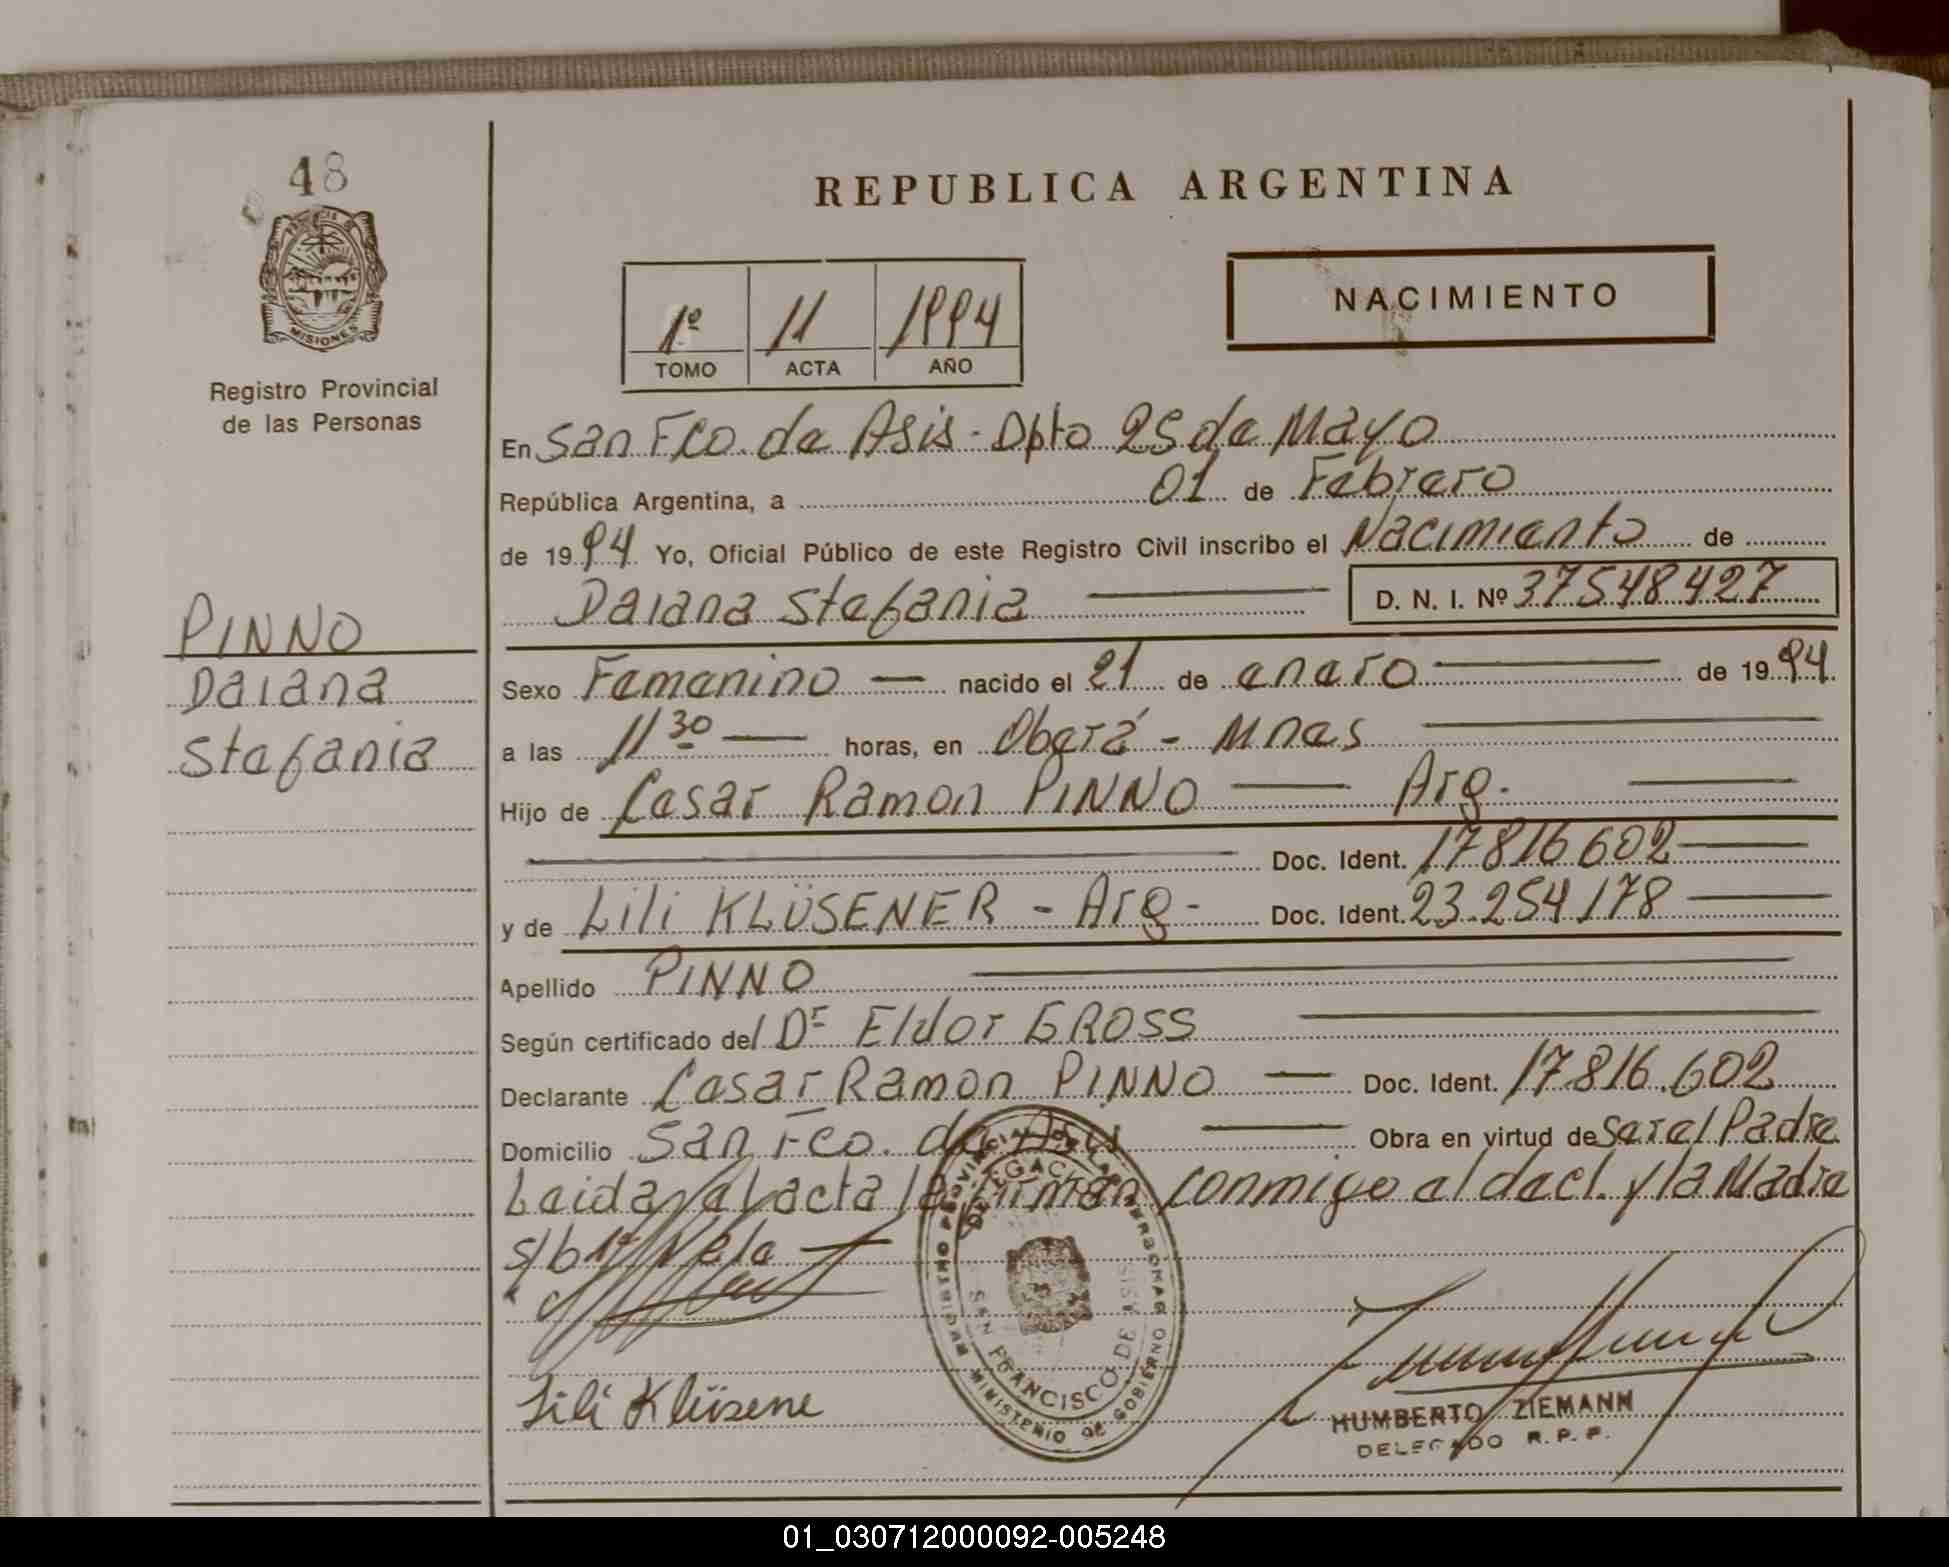 48
PROVINCIA DE
MISIONES
Registro Provincial
de las Personas
PINNO
Daiana
Stefania
REPUBLICA ARGENTINA
1º 11 1994
TOMO ACTA AÑO
NACIMIENTO
En San Fco. de Asis - Dpto 25 de Mayo
República Argentina, a 01 de Febrero
de 1994 Yo, Oficial Público de este Registro Civil inscribo el Nacimiento de
Daiana Stefania D. N. I. Nº 37548427
Sexo Femenino nacido el 21 de enero de 1994.
a las 11 30 horas, en Oberá - Mnes
Hijo de Cesar Ramon PINNO Arg.
Doc. Ident. 17816602
y de Lili KLÜSENER - Arg - Doc. Ident. 23.254.178
Apellido PINNO
Según certificado del Dr Eldor GROSS
Declarante Cesar Ramon PINNO Doc. Ident. 17816.602
Domicilio San Fco. de Asis Obra en virtud de Ser el Padre
Leida el acta la firman conmigo el decl. y la Madre
s/b
Lili Klüsene
REGISTRO PROVINCIAL DE LAS PERSONAS
DELEGACION
SAN FRANCISCO DE ASIS
MINISTERIO DE GOBIERNO
HUMBERTO ZIEMANN
DELEGADO R.P.P.
01_030712000092-005248